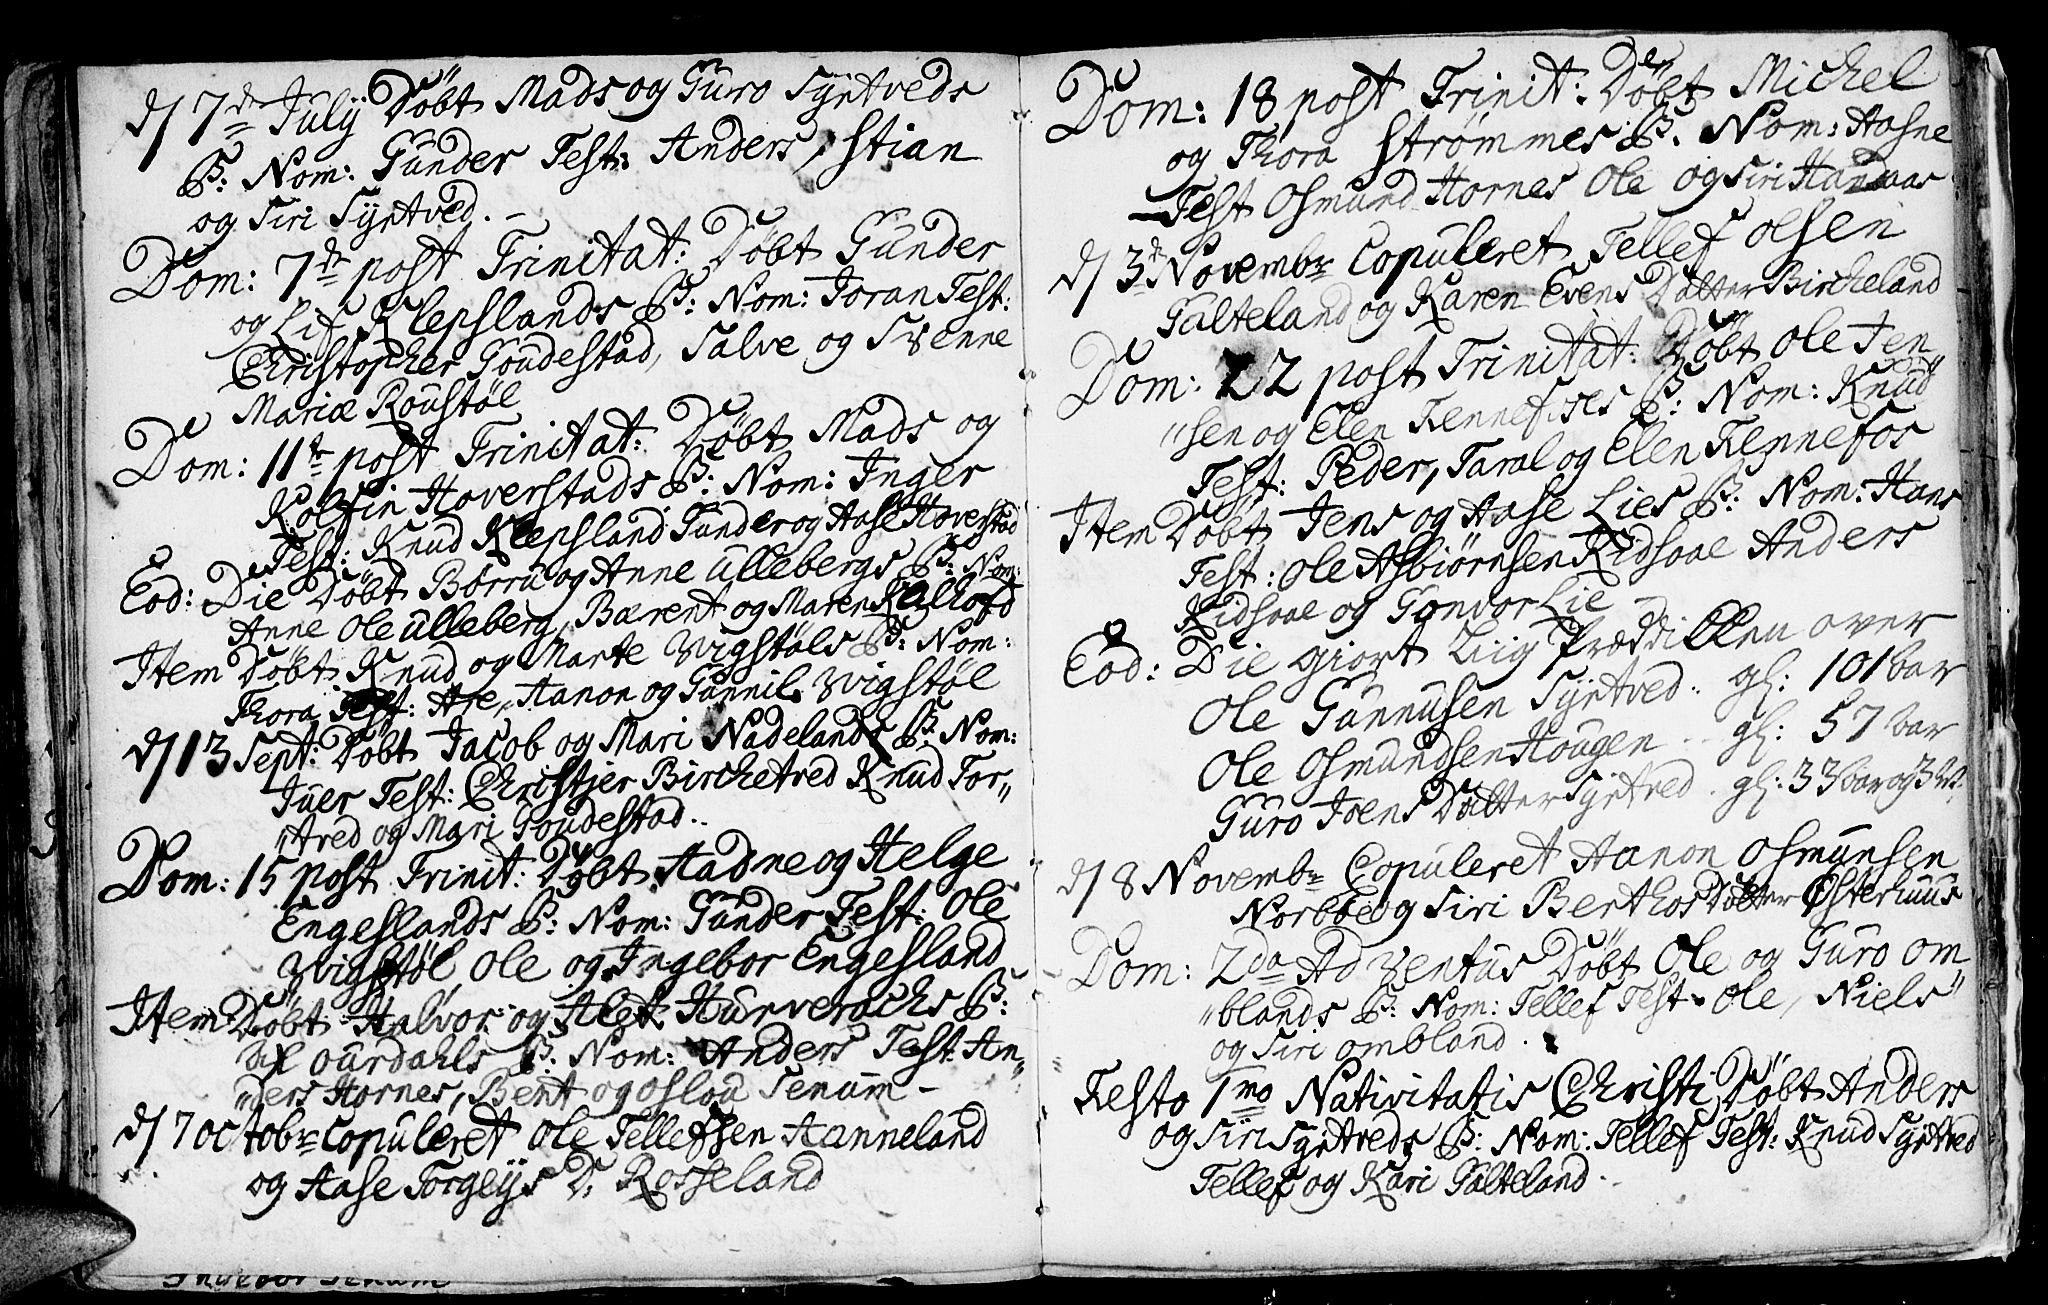 d/ 7de July Döbt Mads og Guro Syrtveds
B: Nom: Gunder Test: Anders, Stian
og Siri Syrtved. –
Dom: 7de post Trinitat: Döbt Gunder
og Lif Klepslands B: Nom: Joran Test:
Christopher Goudestad, Salve og Svenne
Mariæ Roustøl
Dom: 11te post Trinitat: Döbt Mads og
Kolfin Hoverstads B: Nom: Inger
Test: Knud Klepsland Gunder og Aase Hoverstad
Eod: Die Döbt Børru og Anne Ullebergs B: Nom:
Anne Ole Ulleberg, Bærent og Maren
Item Döbt Knud og Marte Wigstøls B: Nom:
Thora Test: Are, Aanon og Gunnil Wigstøl
d/ 13 Sept: Döbt Jacob og Mari Nadelands B: Nom:
Juer Test: Christjer Birchetved Knud Tor„
„tved og Mari Goudestad..
Dom: 15 post Trinit: Döbt Aadne og Helge
Engeslands B: Nom: Gunder Test: Ole
Wigstøl, Ole og Ingebor Engesland
Item Döbt Halvor og Aslet Hurverachs B:
Ourdahls B: Nom: Anders Test: An„
„ders Hornes, Bent og Oslou Senum –
d/ 7 Octobr Copuleret Ole Tellefsen Aanneland
og Aase Torgeijs D. Rosseland
Ingebor Senum
Dom: 18 post Trinit: Döbt Michel
og Thora Strømmes B. Nom: Aasne
Test Osmund Hornes Ole og Siri Haanaas
d/ 3de Novembr Copuleret Tellef Olsen
Galteland og Karen Evens Datter Bircheland
Dom: 22 post Trinitat: Döbt Ole Jen„
„sen og Elen Fennefoses B: Nom: Knud
Test: Peder, Taral og Elen Fennefos
Item Döbt Jens og Aase Lies B: Nom: Hans
Test: Ole Asbiørnsen Kidsaae Anders
Kidsaae og Gonvor Lie –
Eod: Die giort Liig Præddicken over
Ole Gunnusen Syrtved.. gl: 101 bar
Ole Osmundsen Hougen.. gl: 57 bar
Guro Joens Datter Syrtved. gl: 33 bar og 3
d/ 8 Novembr Copuleret Aanon Osmunsen
Norböe og Siri Berthos Datter Østerhuus
Dom: 2da Adventus Döbt Ole og Guro Om
„blands B: Nom: Tellef Test. Ole, Niels
og Siri Ombland.
Festo 1mo Nativitatis Christi Döbt Anders
og Siri Syrtveds B: Nom: Tellef Test: Knud Syrtved
Tellef og Kari Galteland.